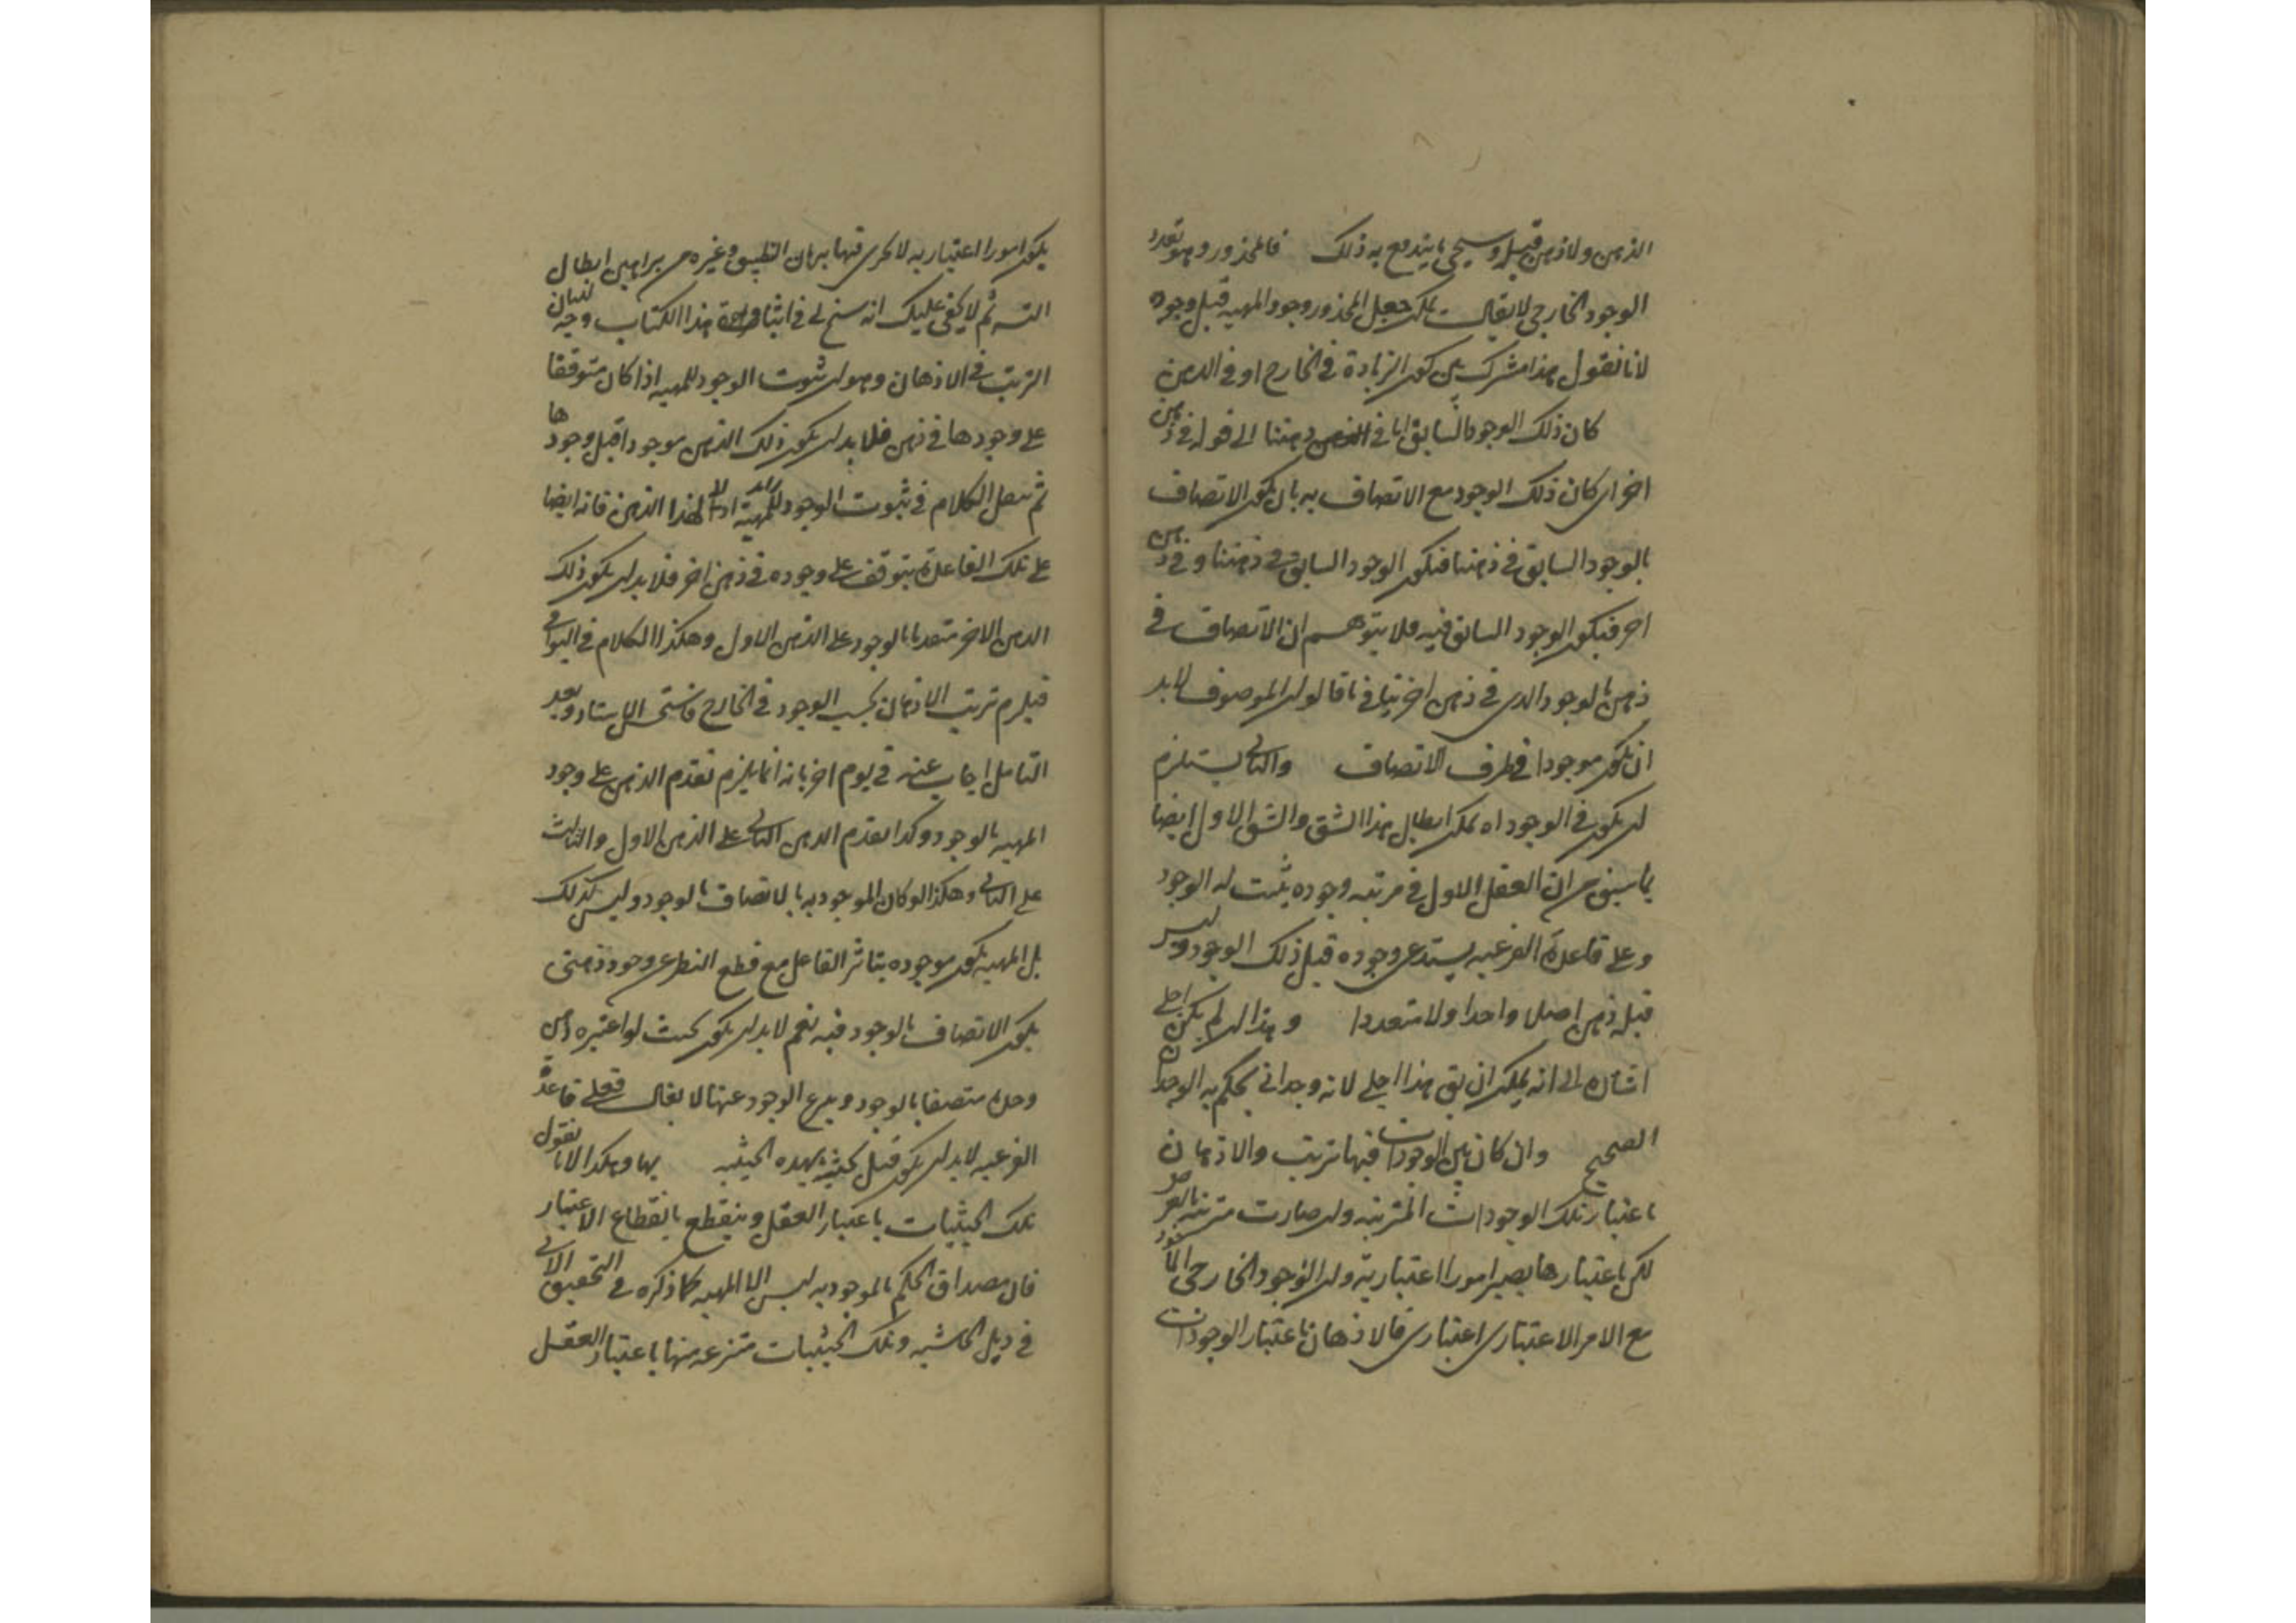 الذهن ولا ذهن قبله وسيجئ ما يندفع به ذلك فالمحذور وهو تعدد
الوجود الخارجي لا يقال يمكن جعل المحذور وجود المهية قبل وجوده
لانا نقول هذا مشترك بين كون الزيادة في الخارج او في الذهن
كان ذلك الوجود السابق اما في ذهننا الى قوله في ذهن
اخر اى كان ذلك الوجود مع الاتصاف به بان يكون الاتصاف
بالوجود السابق في ذهننا فيكون الوجود السابق في ذهننا و في ذهن
اخر فيكون الوجود السابق فيه فلا يتوهم ان الاتصاف في
ذهن بالوجود الذى في ذهن اخر ينافى ما قالوا ان الموصوف لابد
ان يكون موجودا في ظرف الاتصاف والثانى يستلزم
ان يكون في الوجود اه يمكن ابطال هذا الشق والشق الاول ايضا
بما سبق من ان العقل الاول في مرتبه وجوده يثبت له الوجود
وعلى قاعدة الفرعيه يستدعى وجوده قبل ذلك الوجود وليس
قبله ذهن اصلا واحدا ولا متعددا وهذا ان لم يكن اجلى
اشاره الى انه يمكن ان يق هذا اجلى لانه وجدانى يحكم به الوجدان
الصحيح وان كان بين الوجودات فيها ترتب والاذهان
باعتبار تلك الوجودات المترتبه وان صارت مترتبه بالعرض
لكن باعتبارها يصير امورا اعتبارية وان الوجود الخارجى الماخوذ
مع الامر الاعتبارى اعتبارى فالاذهان باعتبار الوجودات
يكون امورا اعتباريه لا يجرى فيها برهان التطبيق وغيره من براهين ابطال
التسه ثم لا يخفى عليك انه سنح لى في اثنا هذا الكتاب وجه لبيان
الترتب في الاذهان وهو ان ثبوت الوجود للمهيه اذا كان متوقفا
على وجودها في ذهن فلا بد ان يكون ذلك الذهن موجودا قبل وجودها
ثم ننقل الكلام في ثبوت الوجود لهذا الذهن فانه ايضا
على تلك القاعدة يتوقف على وجوده في ذهن اخر فلا بد ان يكون ذلك
الذهن الاخر متقدما بالوجود على الذهن الاول وهكذا الكلام في البواقى
فيلزم ترتب الاذهان بحسب الوجود في الخارج فاستحسن الاستاد وبعد
التامل اجاب عنه في يوم اخر بانه انما يلزم تقدم الذهن على وجود
المهيه بالوجود وكذا تقدم الذهن الثانى على الذهن الاول والثالث
على الثانى وهكذا لو كان الموجوديه بالاتصاف بالوجود وليس كذلك
بل المهيه يكون موجوده بتاثر الفاعل مع قطع النظر عن وجود ذهنى
يكون الاتصاف بالوجود فيه نعم لابد ان يكون بحيث لو اعتبره ذهن
وجده متصفا بالوجود وينتزع الوجود عنها لا يقال فعلى قاعدة
الفرعيه لابد ان يكون قبل حيثية بهذه الحيثيه بها وهكذا لانا نقول
تلك الحيثيات باعتبار العقل وينقطع بانقطاع الاعتبار
فان مصداق الحكم بالموجوديه ليس الا المهيه كما ذكره في التحقيق الاتى
في ذيل الحاشيه وتلك الحيثيات منتزعه منها باعتبار العقل